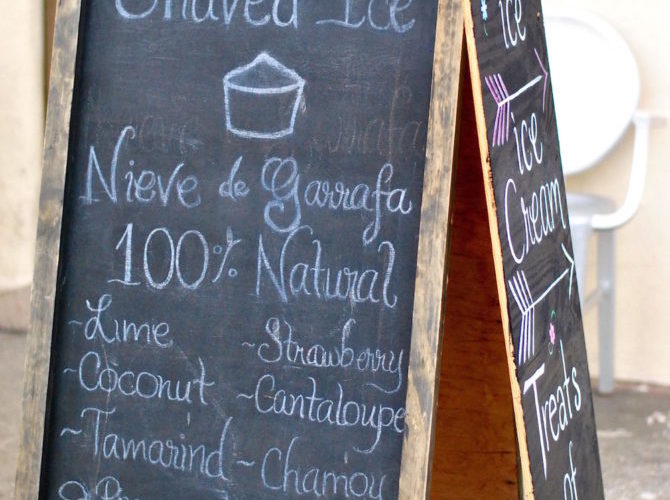 Shaved Ice
Nieve de Garrafa
100% Natural
~Lime
~Strawberry
~Coconut
~Cantaloupe
~Tamarind
~Chamoy
ice
ice
Cream
Treats
of